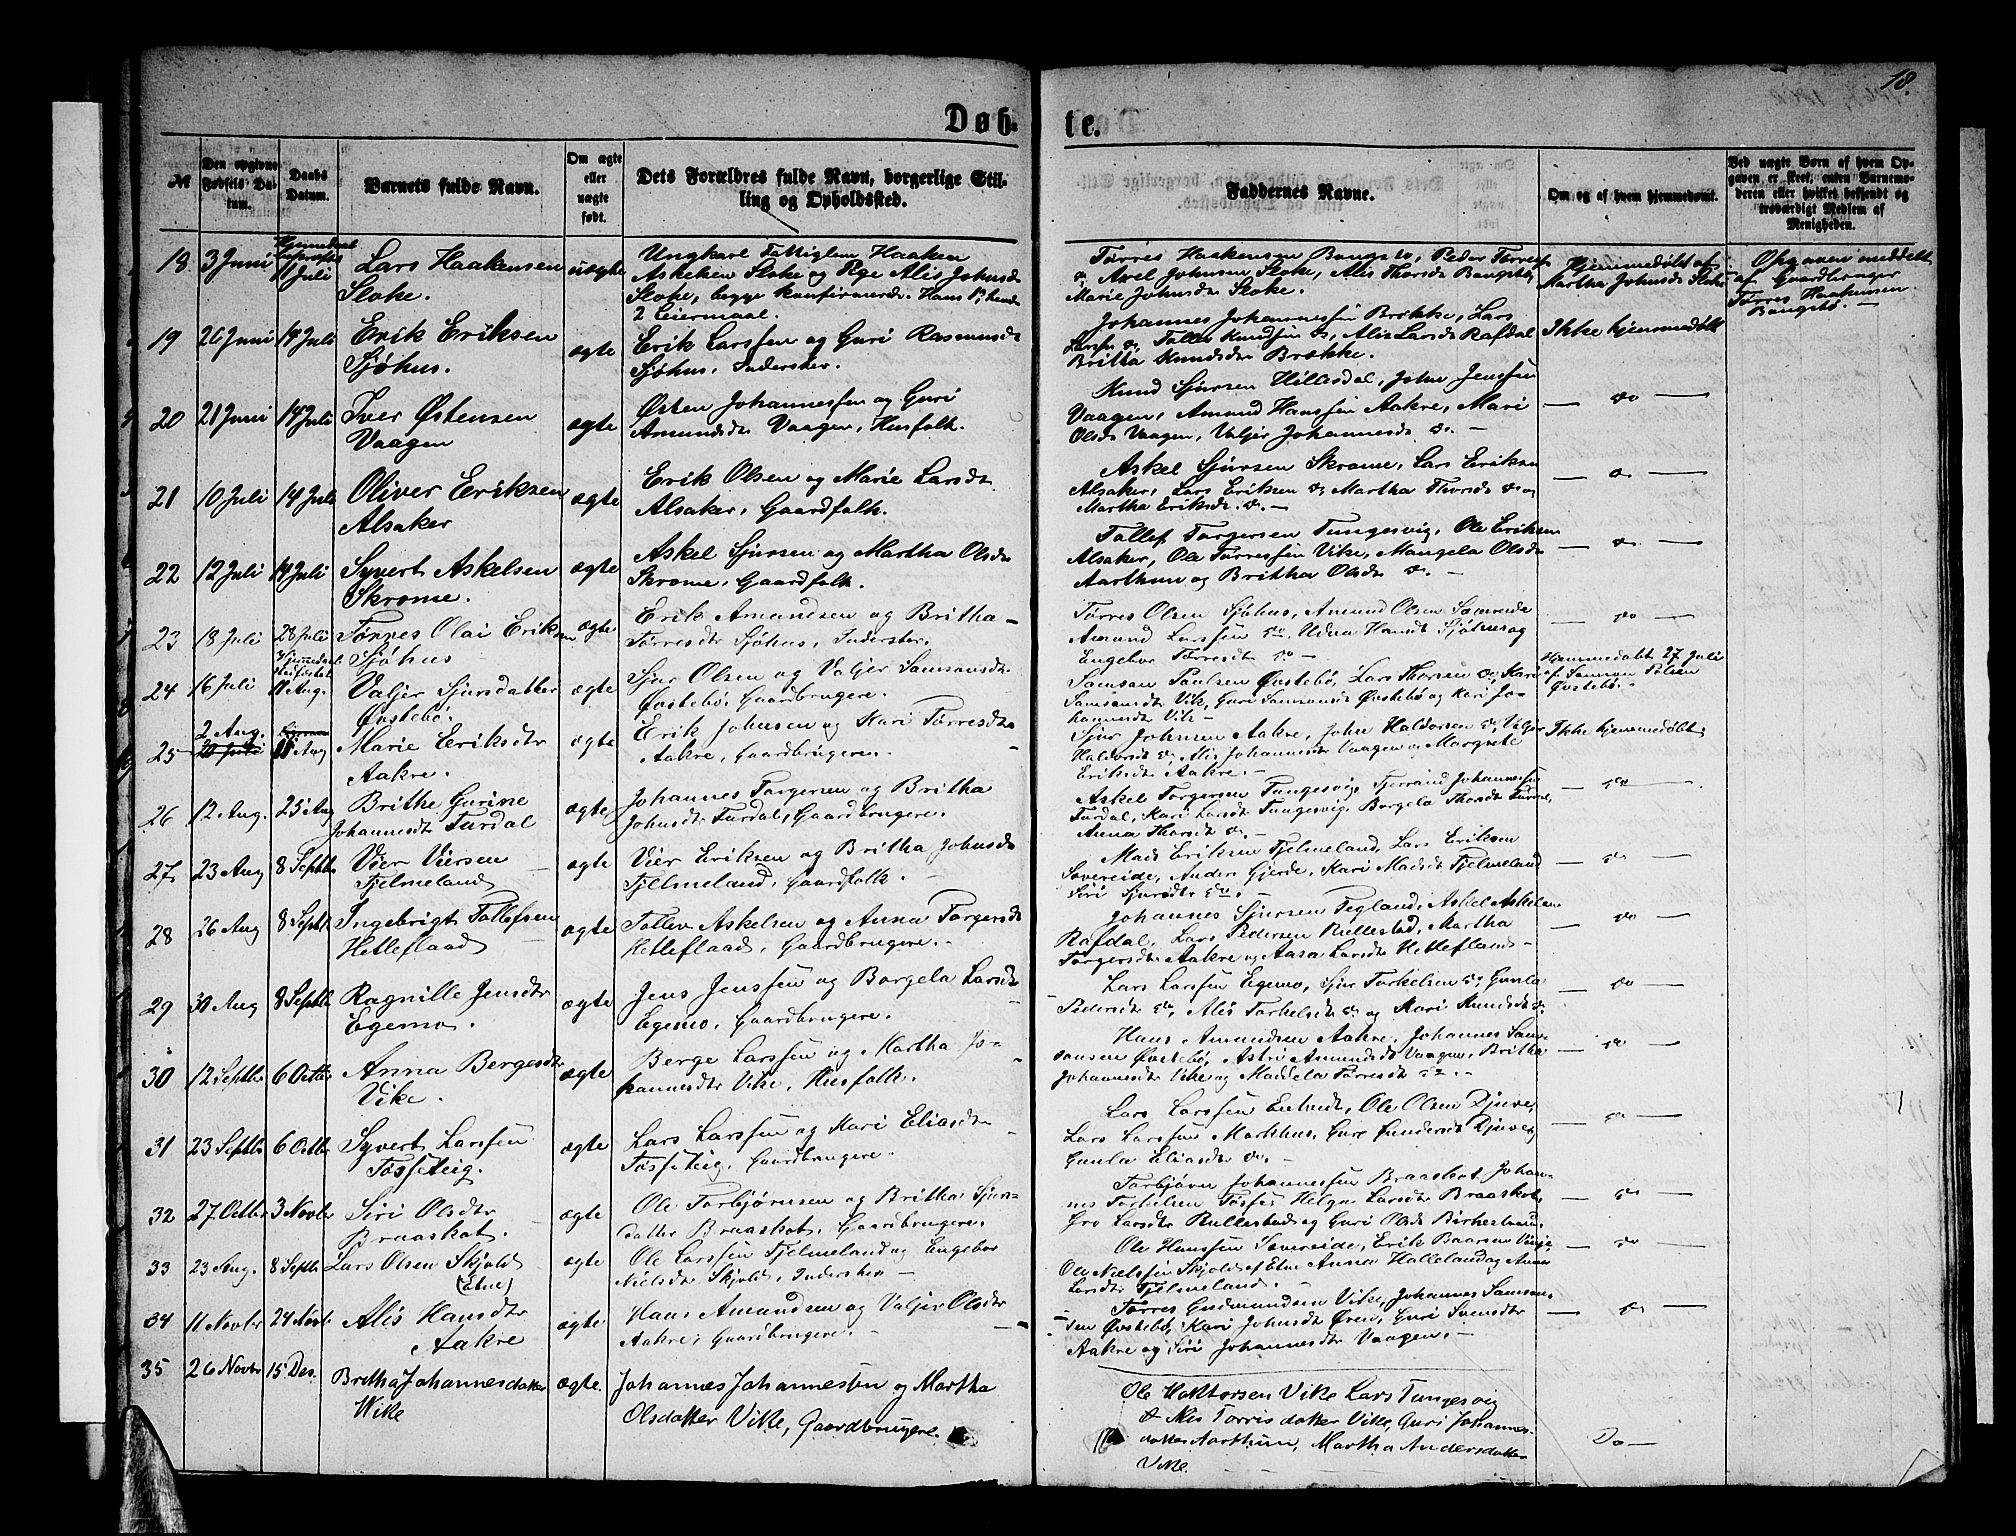 18.
Døb- te.
№
Den opgivne Fødsels Datum.
Daabs Datum.
Barnets fulde Navn.
Om ægte eller uægte født.
Dets Forældres fulde Navn, borgerlige Stilling og Opholdssted.
Faddernes Navne.
Om og af hvem hjemmedøbt.
Ved uægte Børn af hvem Opgaven er skeet, enten Barnemoderen eller hvilket bekjendt og troværdigt Medlem af Menigheden.
18 3 Juni 11 Juli Lars Haakensen uægte Ungkarl Haaken
Askelsen Stoke og Pige Alis Johnsd
Stoke. Stoke, begge konfirmerede. Hans
2 Leiermaal.
Torres Haakensen Bangstø, Peder Torress
Axel Johnsen Stoke, Alis Thorsd Bangstø,
Marie Johnsdr Stoke.
Hjemmedøbt af
Martha Johnsdr Stoke
Opgaven meddelt
af Gaardbruger
Torres Haakensen
Bangstø. —
19 26 Juni 14 Juli Erik Eriksen ægte Erik Larssen og Guri Rasmusd
Sjøhus. Sjøhus, Inderster.
Johannes Johannessen Brekke, Lars
Larssn do, Tollef Knudsen do, Alis Larsdr Rafdal
Britha Knudsdr Brekke.
Ikke hjemmedøbt
20 21 Juni 14 Juli Iver Østensen ægte Østen Johannessen og Guri
Vaagen Amundsdr Vaagen, Husfolk.
Knud Sjursen Hillesdal, John Jenssen
Vaagen, Amund Hanssen Aakre, Mari
Olsdr Vaagen, Valjer Johannesdr do. —
— do —
21 10 Juli 14 Juli Oliver Eriksen ægte Erik Olsen og Marie Larsdr
Alsaker Alsaker, Gaardfolk.
Askel Sjursen Skrome, Lars Eriksen
Alsaker, Lars Eriksen do, Martha Thorsdr do og
Martha Eriksdr do. —
— do —
22 12 Juli 14 Juli Syvert Askelsen ægte Askel Sjursen og Martha Olsdr
Skrome. Skrome, Gaardfolk.
Tollef Torgersen Tungesvig, Ole Eriksen
Alsaker, Ole Torressen Vike, Mangela Olsdr
Aarthun og Britha Olsdr do. —
— do —
23 18 Juli 28 Juli Torres Olai Eriksen ægte Erik Amundsen og Britha
Sjøhus Torresdr Sjøhus, Inderster.
Torres Olsen Sjøhus, Amund Olsen Sævereide
Amund Larssen do, Udna Hansdr Sjøhus og
Engebor Torresdr do
— do —
24 16 Juli 11 Aug. Valjer Sjursdatter ægte Sjur Olsen og Valjer Samsonsdr
Øvstebø. Øvstebø, Gaardbrugere.
Samson Paulsen Øvstebø, Lars Thorsen do, Kari
Samsonsdr Vik, Guri Samsonsdr Øvstebø og Kari Jo-
hannesdr Vik —
Hjemmedøbt 27 Juli
af Samson Polsen
Øvstebø. —
25 2 Aug. 11 Aug Marie Eriksdtr ægte Erik Johnsen og Kari Torresdtr
Aakre. Aakre, Gaardbrugere.
Sjur Johnsen Aakre, John Haldorsen do, Valjer
Haldorsdr do, Alis Johannesdr Vaagen og Margrete
Eriksdr Aakre. —
Ikke hjemmedøbt
26 12 Aug. 25 Aug Brithe Gurine ægte Johannes Torgersen og Britha
Johannesdr Furdal Johnsdr Furdal, Gaardbrugere.
Askel Torgersen Tungesvig, Johannessen
Furdal, Kari Larsdr Tungesvig, Borgela Thorsdr Furdal,
Anna Thorsdr do. —
— do —
27 23 Aug 8 Septbr Vier Viersen ægte Vier Eriksen og Britha Johnsdr
Fjelmeland Fjelmeland, Gaardfolk. —
Mads Eriksen Fjelmeland, Lars Eriksen
Sævereide, Anders Gjerde, Kari Madsdr Fjelmeland
Siri Sjursdtr do. —
— do —
28 26 Aug 8 Septbr Ingebrigt Tollefsen ægte Tollev Askelsen og Anna Torgersdr
Hetleflaad Hetleflaad, Gaardbrugere. —
Johannes Sjursen Tegland, Askel Askelsen
Rafdal, Lars Pedersen Rullestad, Martha
Torgersdr Aakre og Aasa Larsdr Hetlefland —
— do —
29 31 Aug 8 Septbr Ragnille Jensdtr ægte Jens Jenssen og Borgela Larsdr
Egemo. Egemo, Gaardbrugere.
Lars Larssen Egemo, Sjur Torkelsen do, Gunla
Pedersdr do, Alis Torkelsdr do og Kari Knudsdr do.
— do —
30 12 Septbr 6 Octbr Anna Bergesdtr ægte Berge Larssen og Martha Jo-
Vike. hannesdtr Vike, Husfolk.
Hans Amundsen Aakre, Johannes Sam-
sonsen Øvstebø, Astri Amundsdr Vaagen, Britha
Johannesdtr Vike og Maddela Torresdr do. —
— do —
31 23 Septbr 6 Octbr Syvert Larssen ægte Lars Larssen og Kari Eliasdtr
Fosseteig. Fosseteig, Gaardbrugere.
Lars Larssen Ole Olsen Djuve,
Lars Larssen Markhus, Guro Gundersdr Djuve,
Gunla Eliasdtr do. —
— do —
32 27 Octbr 3 Novbr Siri Olsdtr ægte Ole Torbjørnsen og Britha Sjurs-
Braaskot. datter Braaskot, Gaardbrugere.
Torbjørn Johannessen Braaskot, Johan-
nes Torkelsen Fosse, Helga Larsdtr Braaskot,
Gro Larsdtr Rullestad og Guri Olsdr
— do —
33 23 Aug. 8 Septbr Lars Olsen Skjold ægte Ole Larssen Fjelmeland og Engebor
(Etne) Nielsdr Skjold, Indersten —
Ole Hanssen Sævereide, Erik Baarsen Vinje,
Ole Nielssen Skjold af Etne Anna Halleland og Anna
Larsdtr Fjelmeland. —
— do —
34 11 Novbr 24 Novb Alis Hansdtr ægte Hans Amundsen og Valjer Olsdtr
Aakre Aakre, Gaardbrugere. —
Torres Gudmundsen Vike, Johannes Samson-
sen Øvstebø, Kari Johnsdr Øren, Guri Svensdtr
Aakre og Siri Johannesdtr Vaagen. —
— do —
35 26 Novbr 15 Des. Britha Johannesdatter ægte. Johannes Johannessen og Martha
Wike Olsdatter Vike, Gaardbrugere.
Ole Vike Lars Tungesvig
& Alis Torrisdatter Vike, Guri Johannes-
datter Aarthun, Martha Andersdatter
Vike.
Do —